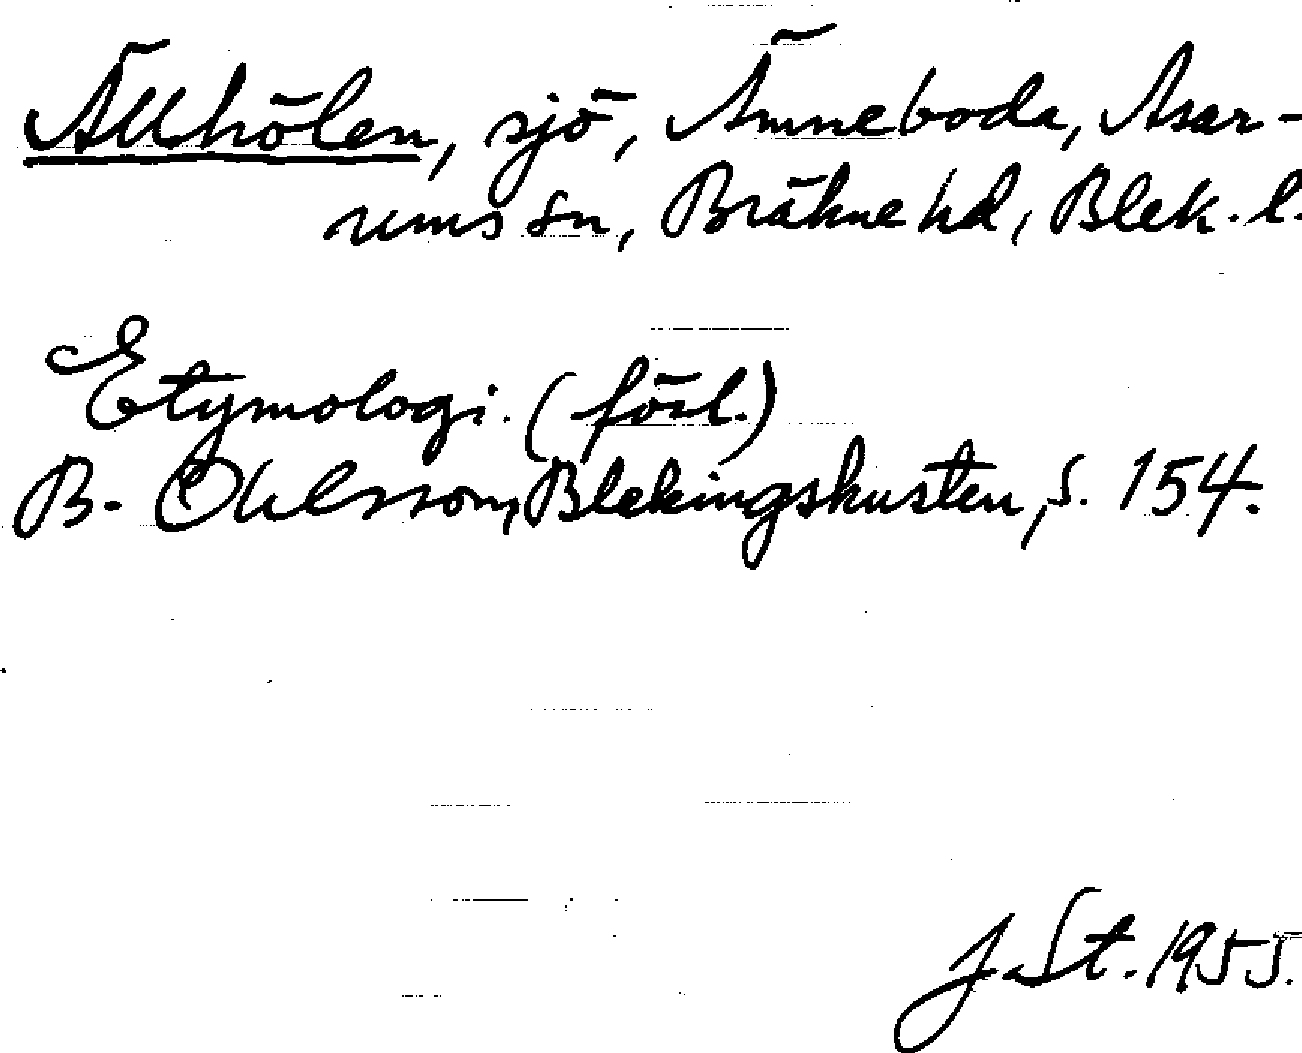 Ällhölen, sjö, Ämneboda, Asar-
ums sn, Bräkne hd, Blek. l.
Etymologi. (förl.)
B. Ohlsson, Blekingskusten, s. 154.
J. St. 1955.